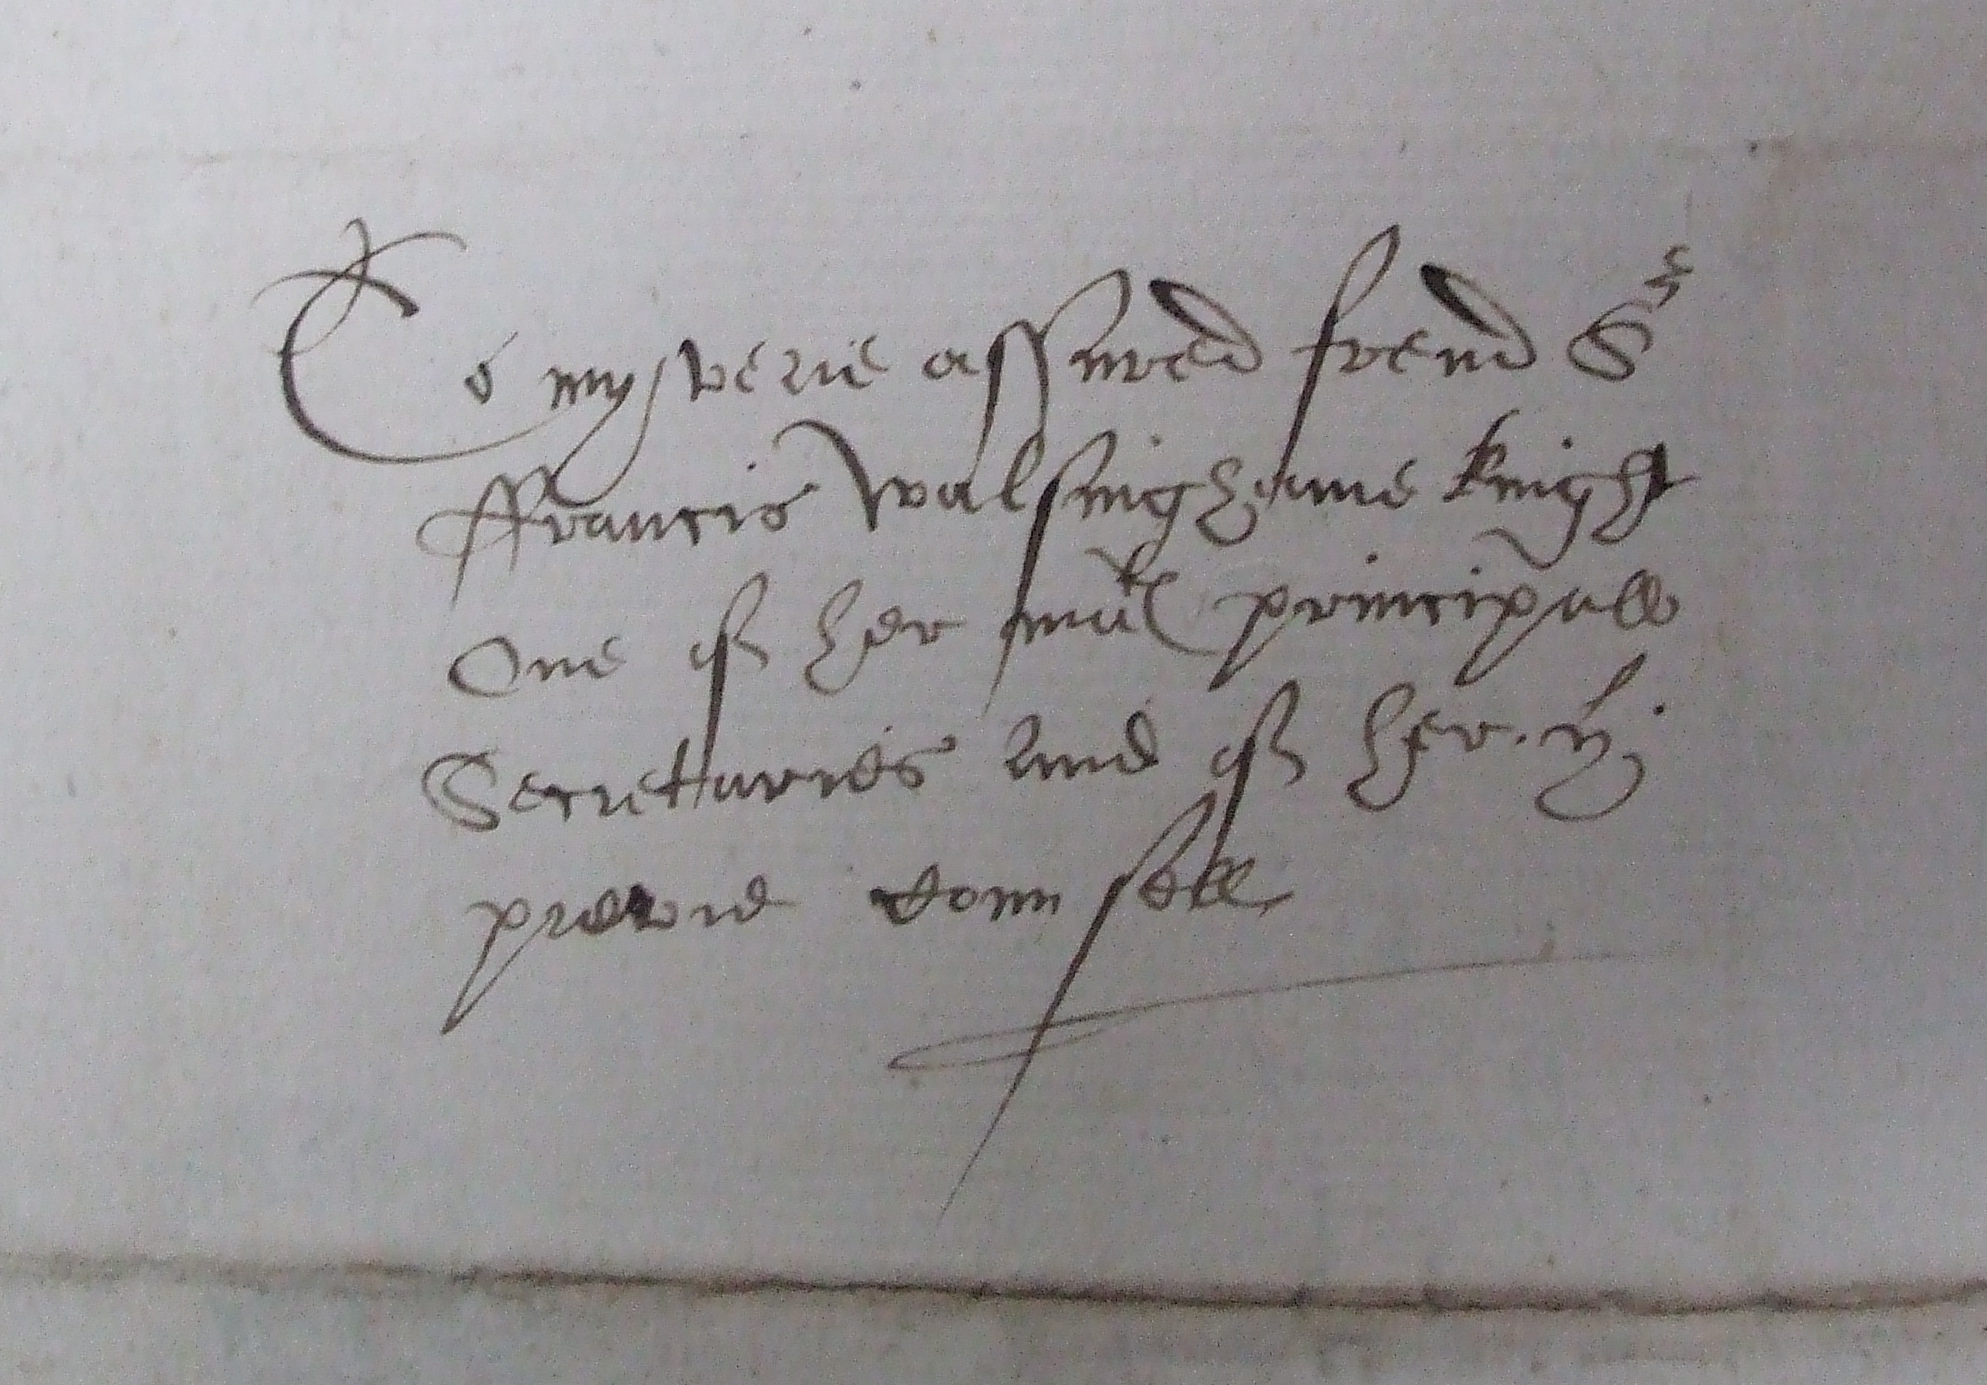 To my verie assured frend Sr
ffrancis Walsinghame knight
One of her matˢ principall
Secretaries And of her h:
previe Counsell